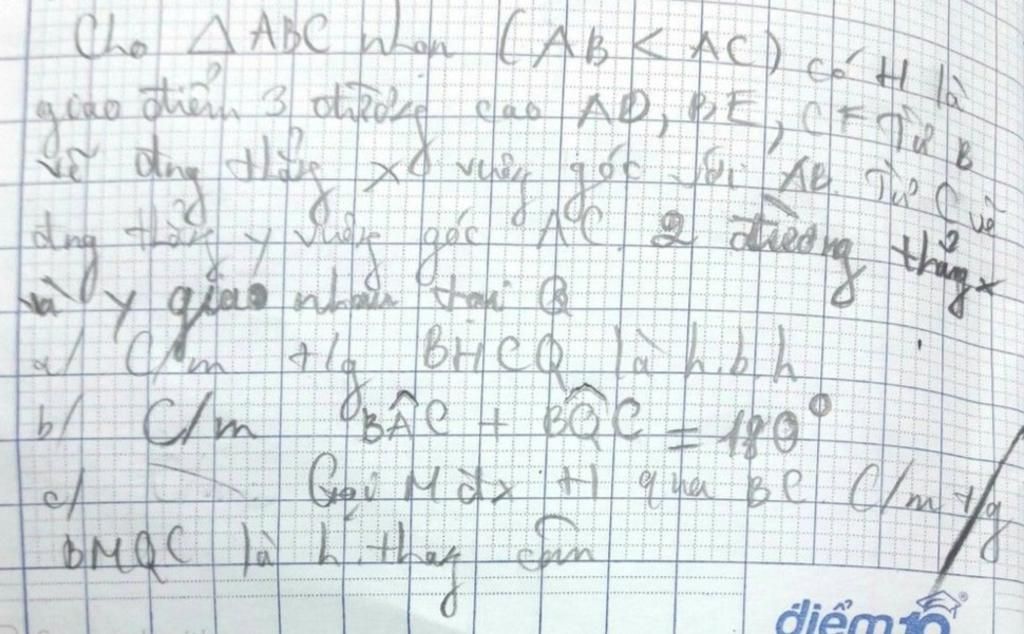 Cho △ABC nhọn (AB < AC) có H là
giao điểm 3 đường cao AD, BE, CF Từ B
vẽ đng thẳng x vuông góc với AB Từ C vẽ
đng thẳng y vuông góc AC. 2 đường thẳng x
và y giao nhau tại Q
a/ C/m t/g BHCQ là h.b.h
b/ C/m BÂC + BQ̂C = 180°
c/ Gọi M đx H qua BC C/m t/g
BMQC là h.thag cân
điểm 10